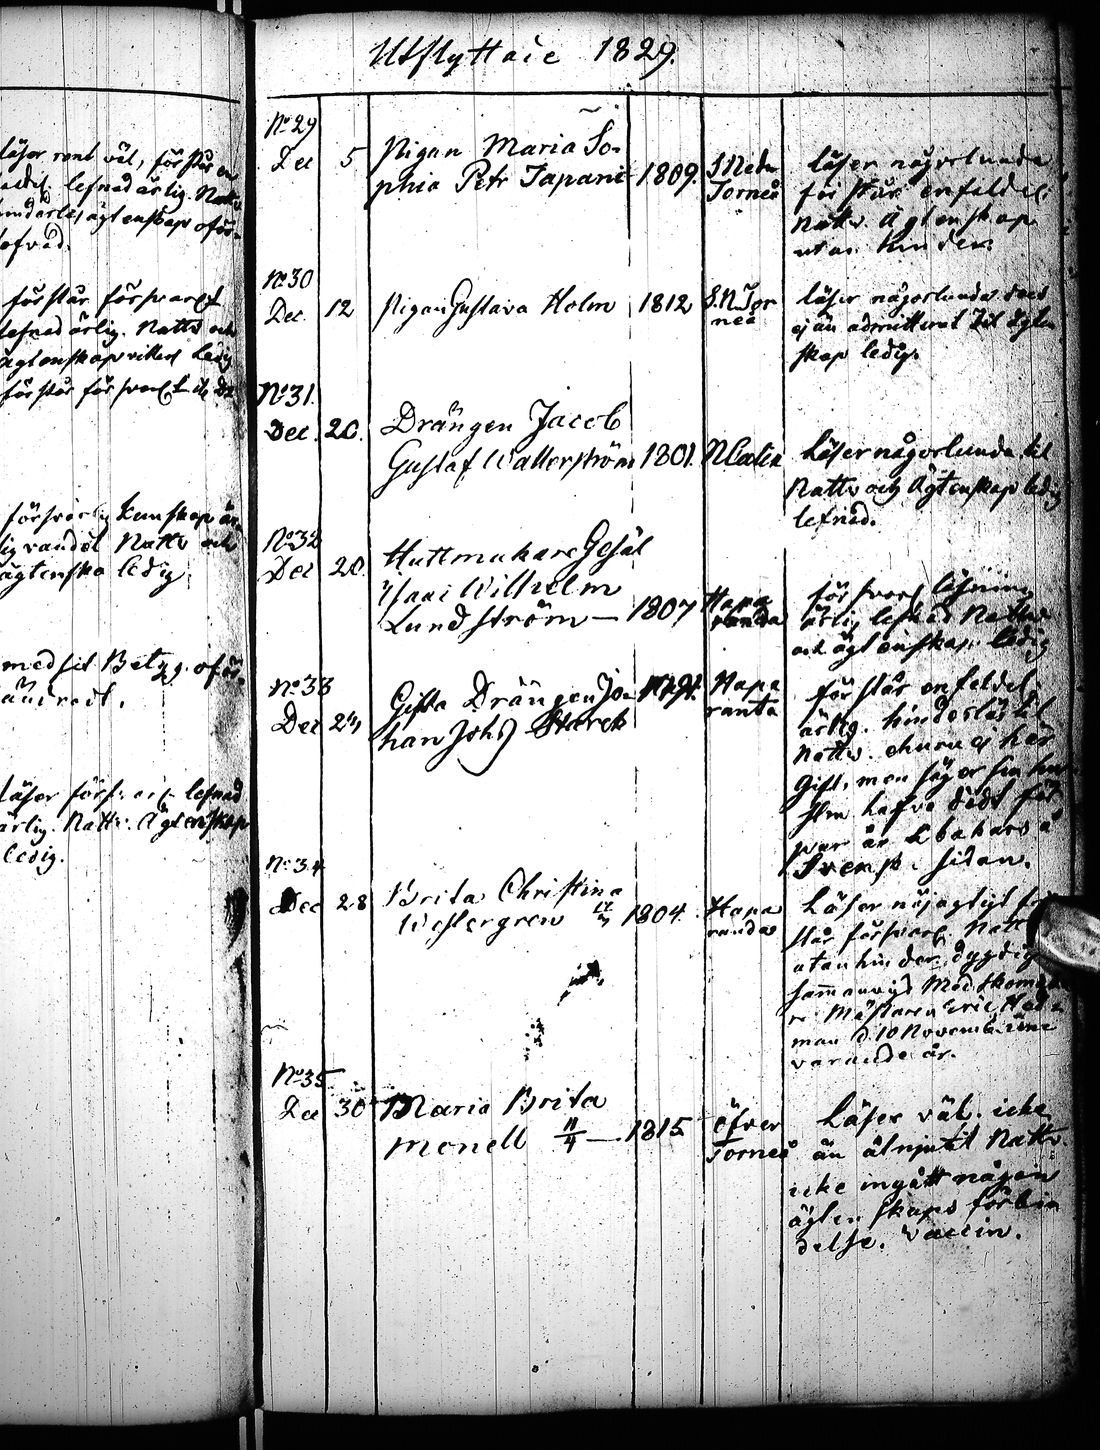 läser rent väl, förstår en
lefnad ärlig. Nattv
ägtenskap oför-
förstår förswarl.
lefnad ärlig. Nattv och
ägtenskap vilkor ledig
förstår förswarl.
förswarlig kunskap är-
lig vandel Nattv och
ägtenska ledig.
med sit Betyg. oför-
ändradt.
läser förs lefnad
ärlig. Nattv. Ägtenskap
ledig.
Utflyttade 1829.
No 29
Dec 5 Pigan Maria So-
phia Petr Tapani 1809. Neder
Torneå
läser någorlunda
förstår enfeldel:
Nattv. Ägtenskap
utan hinder.
No 30
Dec. 12 Pigan Gustava Holm 1812 S. N. Tor
neå
läser någorlunda
ej än admitterat til Ägten
skap ledig.
No 31.
Dec. 20. Drängen Jacob
Gustaf Wallerström 1801. N Calix
Läser någorlunda til
Nattv och Ägtenskap ledig
lefnad.
No 32
Dec 20. Hattmakare Gesäl
Isaac Wilhelm
Lundström — 1807 Hapa
randa
försvarl läsning
ärlig lefnad Nattv
och ägtenskap ledig
No 33
Dec Gifta Drängen Jo-
han Johs Starck Hapa
ranta
förstår enfeldel.
ärlig. hinderslös til
Nattv. ehuru ej här
Gift, men säger sig
hafva
par år
Svensk. sidan.
No 34
Dec 28 Brita Christina
Westergren 1804. Hapa
randa
Läser nöjagtigt för
står försvarl. Nattv
utan hinder, dygdig
sammanvigd Med Skomaka
re Mästaren Eric
man d. 10 Novemb. inne
varande år.
No 35
Dec 30 Maria Brita
Monell 11/4 — 1815 Öfver
Torneå
Läser väl. icke
än åtnjutit Nattv.
icke ingått någon
ägtenskaps förbin
delse. Vaccin.